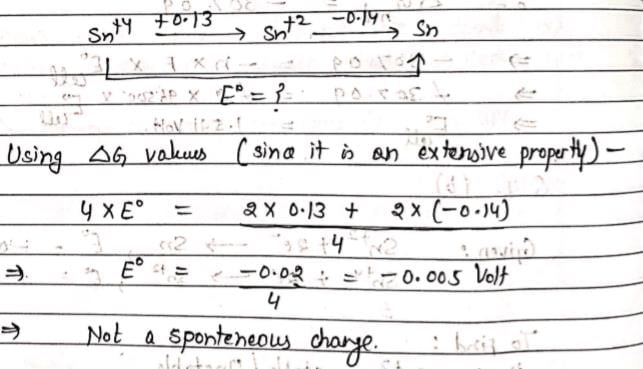 Sn⁺⁴ +0.13 → Sn⁺² -0.14 → Sn
E° = ?
Using ΔG values (since it is an extensive property) -
4 × E° = 2 × 0.13 + 2 × (-0.14)
4
⇒ E° = -0.02 = -0.005 Volt
4
⇒ Not a sponteneous change.